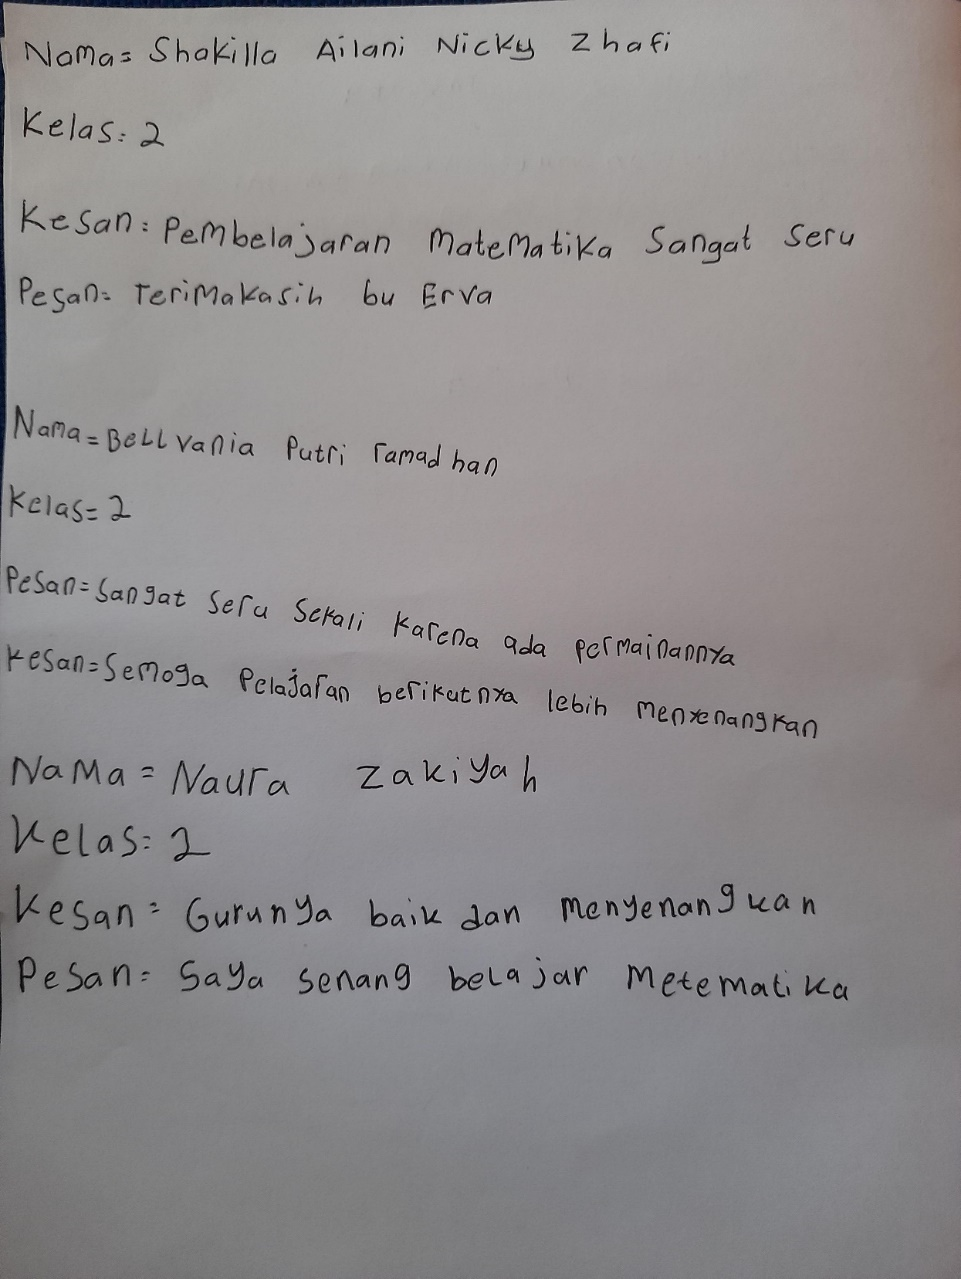 Nama= Shakilla Ailani Nicky Zhafi
Kelas: 2
Kesan: Pembelajaran Matematika Sangat Seru
Pesan= Terimakasih bu Erva
Nama=Bellvania Putri ramadhan
Kelas= 2
Pesan= Sangat Seru Sekali Karena ada permainannya
Kesan=Semoga Pelajaran berikutnya lebih menyenangkan
NaMa = Naura zakiyah
Kelas: 2
Kesan = Gurunya baik dan menyenangkan
Pesan= Saya senang belajar Metematika